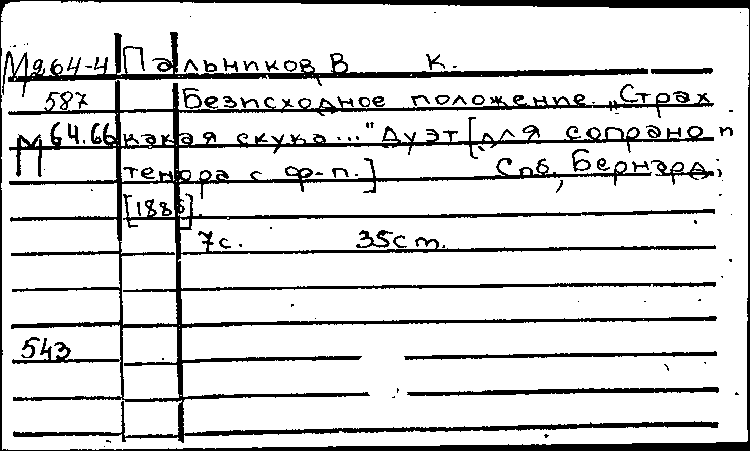 М 264-4 Пальников, В К.
587 Безисходное положение. „Страх
М 64.66 какая скука..." Дуэт [для сопрано и
тенора с ф-п.] Спб., Бернард,
[1886].
7с. 35см.
543